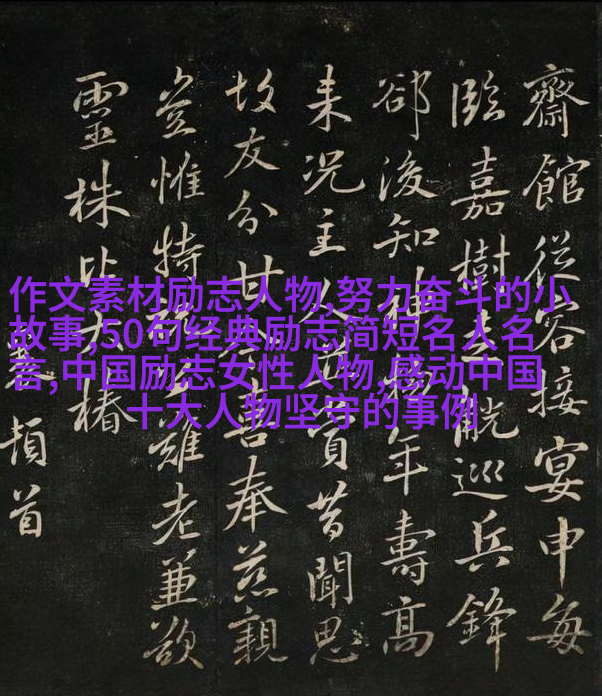 作文素材励志人物,努力奋斗的小
故事,50句经典励志简短名人名
言,中国励志女性人物,感动中国
十大人物坚守的事例
齋館從容接宴申每
臨嘉樹 巡兵鋒
郤後知神物年壽高
来況主人 賞昔聞思
故友分甘 喜奉慈親
豈惟特 難老兼欲
靈株比大椿
頓首